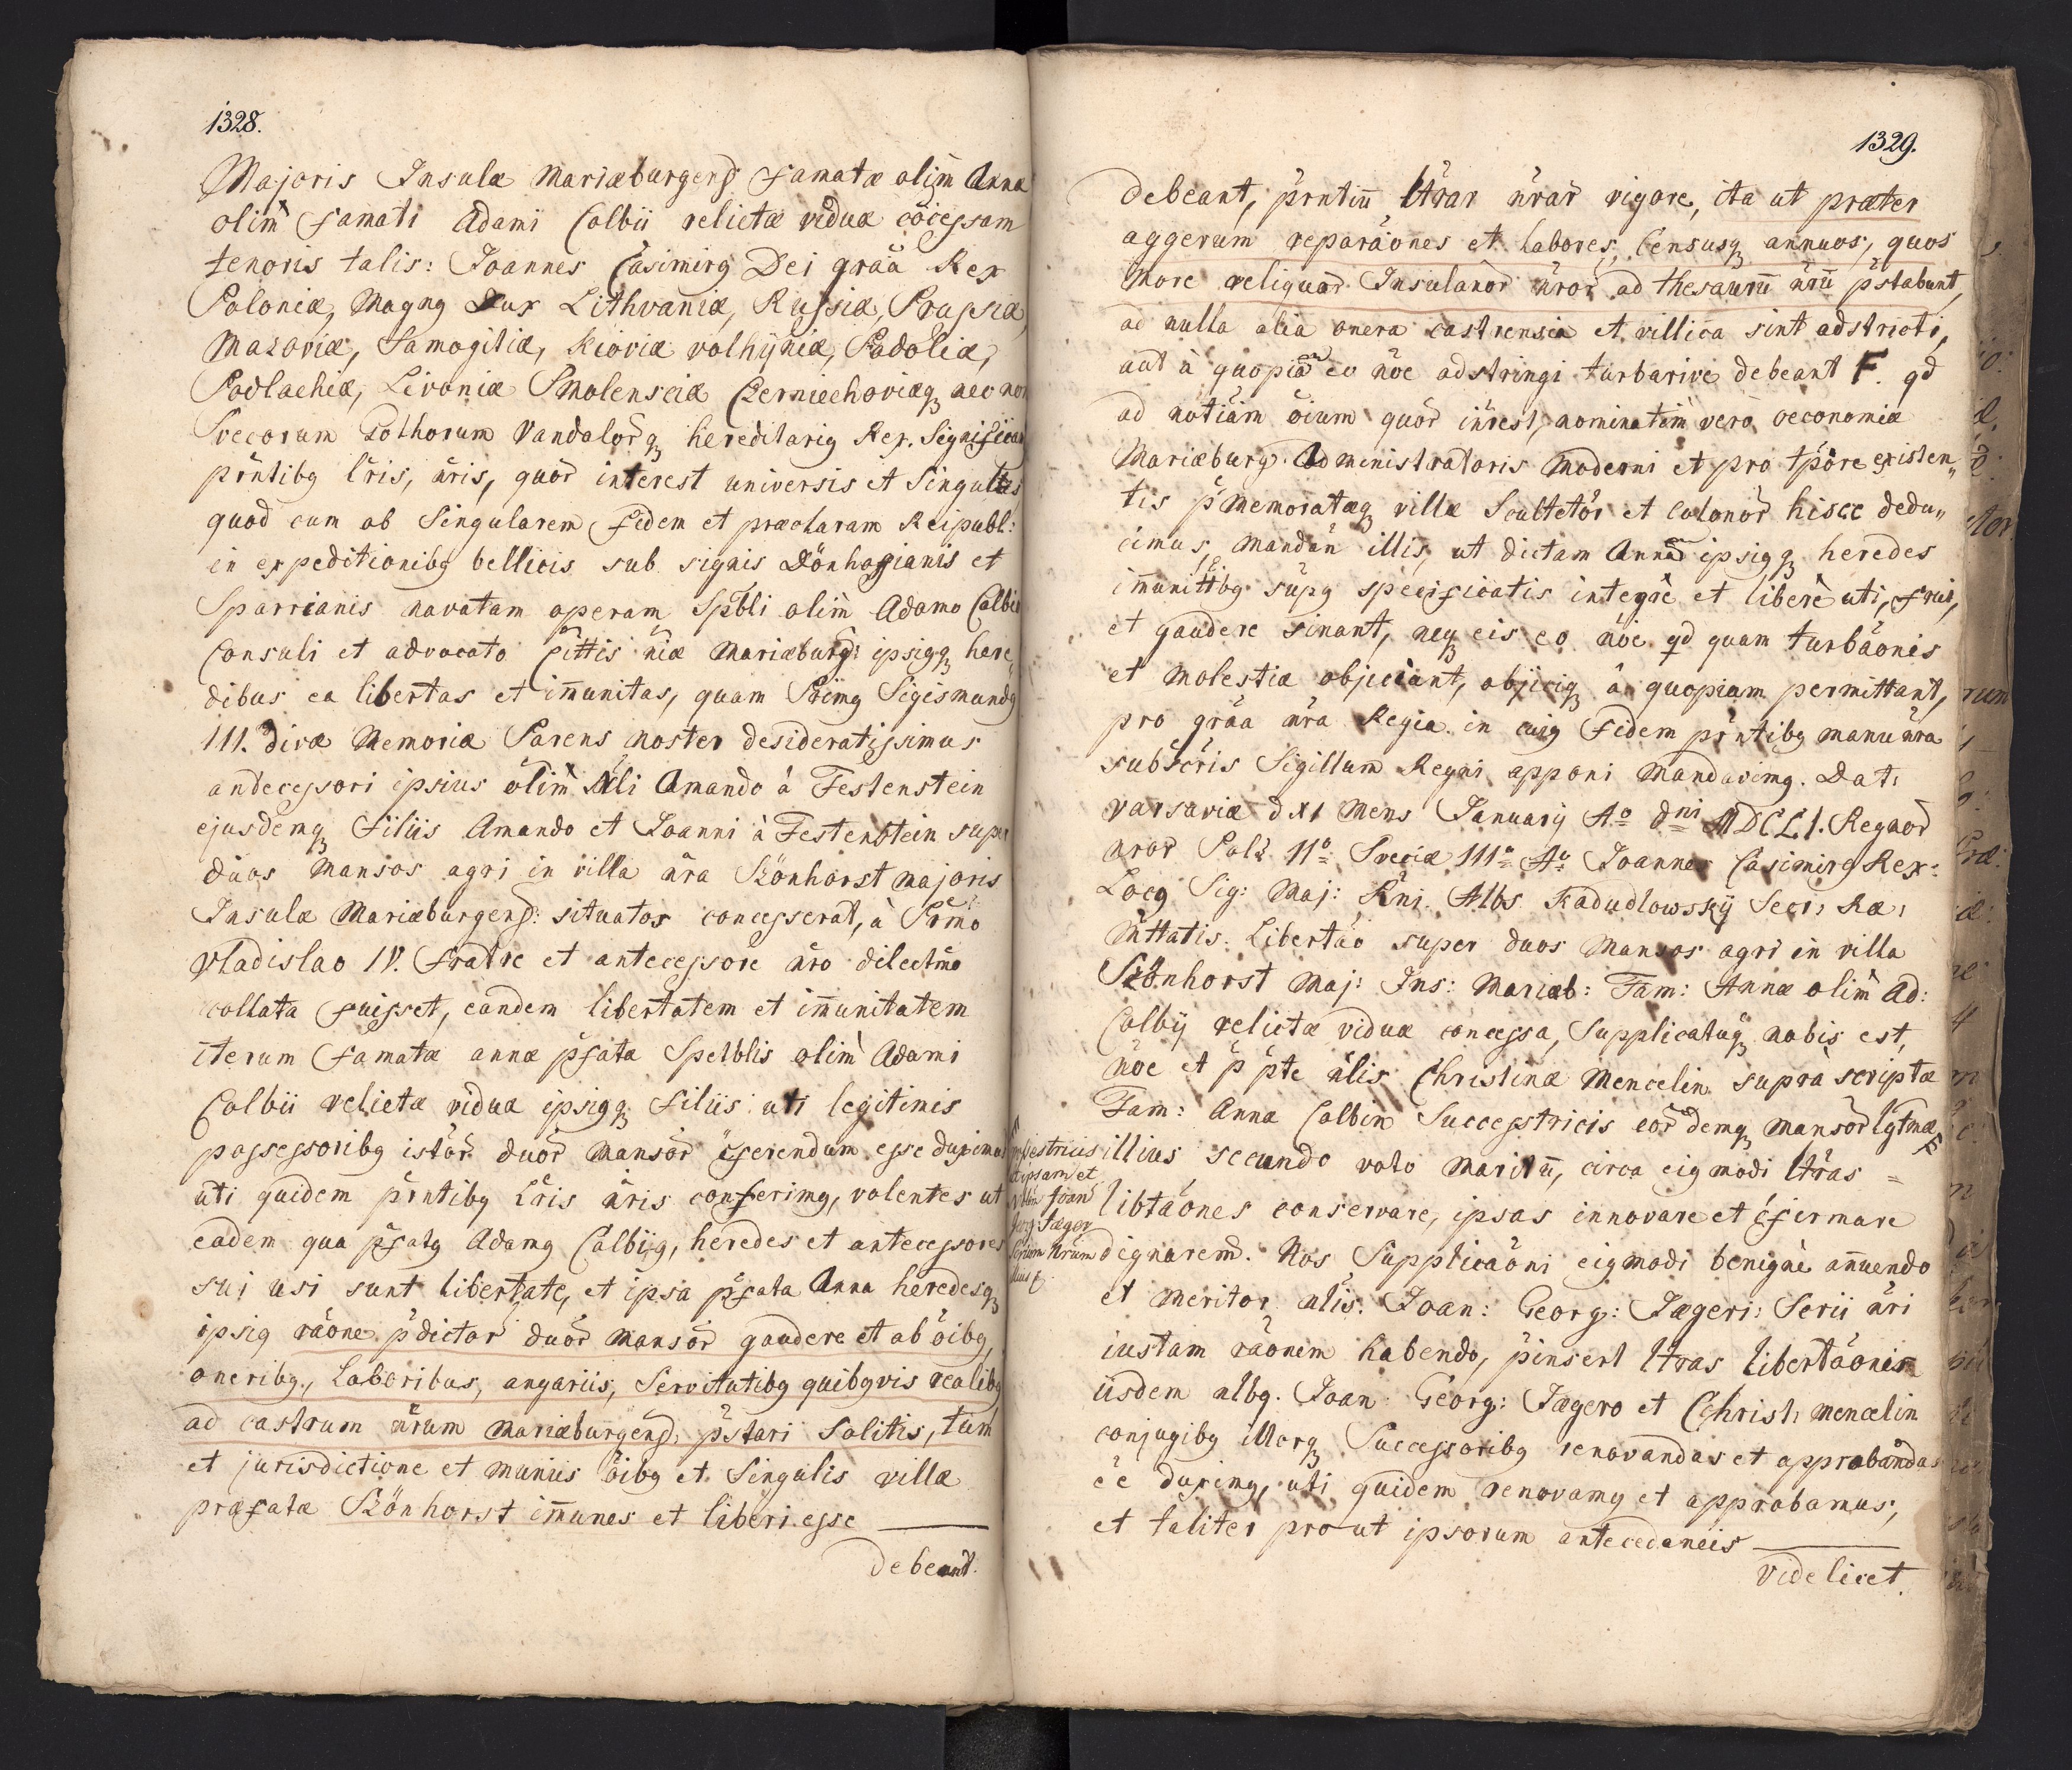 1328.
Majoris Insulæ Mariæburgens famatæ olim Anna
olim famati Adami Colbii relictæ viduæ cöicessam
tenoris talis: Joannes Casimirg Dei gräa Rex
Poloniæ, Magng Dux Lithvaniæ, Russiæ, Prussiæ,
Mazoviæ, Samogitiæ, Kioviæ volhijniæ, Podoliæ,
Podlachiæ, Livoniæ Smolensciæ Czerniechoviæq nec non
Svecorum Gothorum Vandalorq hereditarig Rex. Significam
pr̈ntibg lr̈is, n̈ris, quör interest universis et Singulis
quod cum ob Singularem fidem et præclaram Reipubl:
in expeditionibg bellicis sub signis Dönhoffianis et
Sparrianis navatam operam Spbli olim Adamo Colbii
Consuli et advocato Citttis n̈iæ Mariæburg: ipsigq here„
dibus ea libertas et im̄unitas, quam S̈rimg Sigismundg
III. divæ Memoriæ Parens noster desideratissimus
andecessori ipsius olim Nli Amando à Festenstein
ejusdemq filiis Amando et Joanni à Festenstein super
duos Mansos agri in villa n̈ra Szönhorst majoris
Insulæ Mariæburgens: situatos concesserat, à S̈rmo
Vladislao IV. fratre et antecessore n̈ro dilectm̃o
collata fuisset, eandem libertatem et im̄unitatem
iterum famatæ annæ p̈fatæ Spetblis olim Adami
Colbii relictæ viduæ ipsigq filiis uti legitimis
possessoribg istör duör Mansör c̈ferendum esse duximus
uti quidem pr̈ntibg Lr̈is n̈ris conferimg, volentes ut
eadem qua p̈fatg Adamg Colbijg, heredes et antecessores
sui usi sunt libertate, et ipsa p̈fata Anna heredesq
ipsig räone p̈dictor duör mansör gaudere et ab öibg,
oneribg, Laboribus, angariis, Servitutibg quibgvis realibg
ad castrum n̈rum Mariæburgens, p̈stari Solitis, tum
et jurisdictione et muniis öibg et Singulis villæ
præfatæ Szönhorst im̄unes et liberi esse
debeant.
1329.
debeant, pr̈ntiū ltrar n̈rar vigore, ita ut præter
aggerum reparäones et labores, Censusq annuos, quos
More reliquor Insulanor n̈ror ad thesaurū n̈rū p̈stabunt,
ad nulla alia onera castrensia et villica sint adstricti,
aut à quopiam eo nöe adstringi turbarive debeant F. qd
ad notiäm öium quör inrest, nominatim vero oeconomiæ
Mariæburg. Administratoris Moderni et pro tpöre existen„
tis p̈memoratæq villæ Scultetör et colonör hisce dedu„
cimus, mandän illis, ut dictam Annam ipsigq heredes
im̄unittbg süpg specificatis integre et libere uti, frui,
et gaudere sinant, neq eis eo nöie qd quam turbäonis
et Molestiæ objiciant, objiciq à quopiam permittant,
pro gräa n̈ra Regia. in cuig fidem pr̈ntibg manu n̈ra
subscris Sigillum Regni apponi Mandavimg. Dat:
varsaviæ d XI Mens Januarij Aº dni MDCLI. Regnor
nror Pol: IIº Sveciæ IIIº Aº Joannes Casimirg Rex:
Locg Sig: Maj: Rni. Albs Kadudlowskÿ Secr: Ræ:
Mttatis. Libertäo super duos Mansos agri in villa
Szönhorst Maj: Ins: Mariæb: Fam: Annæ olim Ad:
Colbij relictæ viduæ concessa, Supplicatuq nobis est,
nöe et p̈ p̈te nlis Christinæ Mencelin supra scriptæ
Fam: Annæ Colbin Successtricis eör demq mansör lgtmæ F
illius secundo voto Maritū, circa eigmodi ltras
libtäones conservare, ipsas innovare et c̈firmare
dignarem̄. Nos Supplicäoni eigmodi benigne an̄uendo
et meritor nlis. Joan: Georg: Jægeri: Serii n̈ri
iustam räonem habendo, p̈insert ltras libertäonis
iisdem nlbg. Joan: Georg: Jægero et Christ: Mencelin
conjugibg illorq Successoribg renovandas et approbandas
ëe duximg, uti quidem renovamg et approbamus,
et taliter prout ipsorum antecedaneis
videlicet.